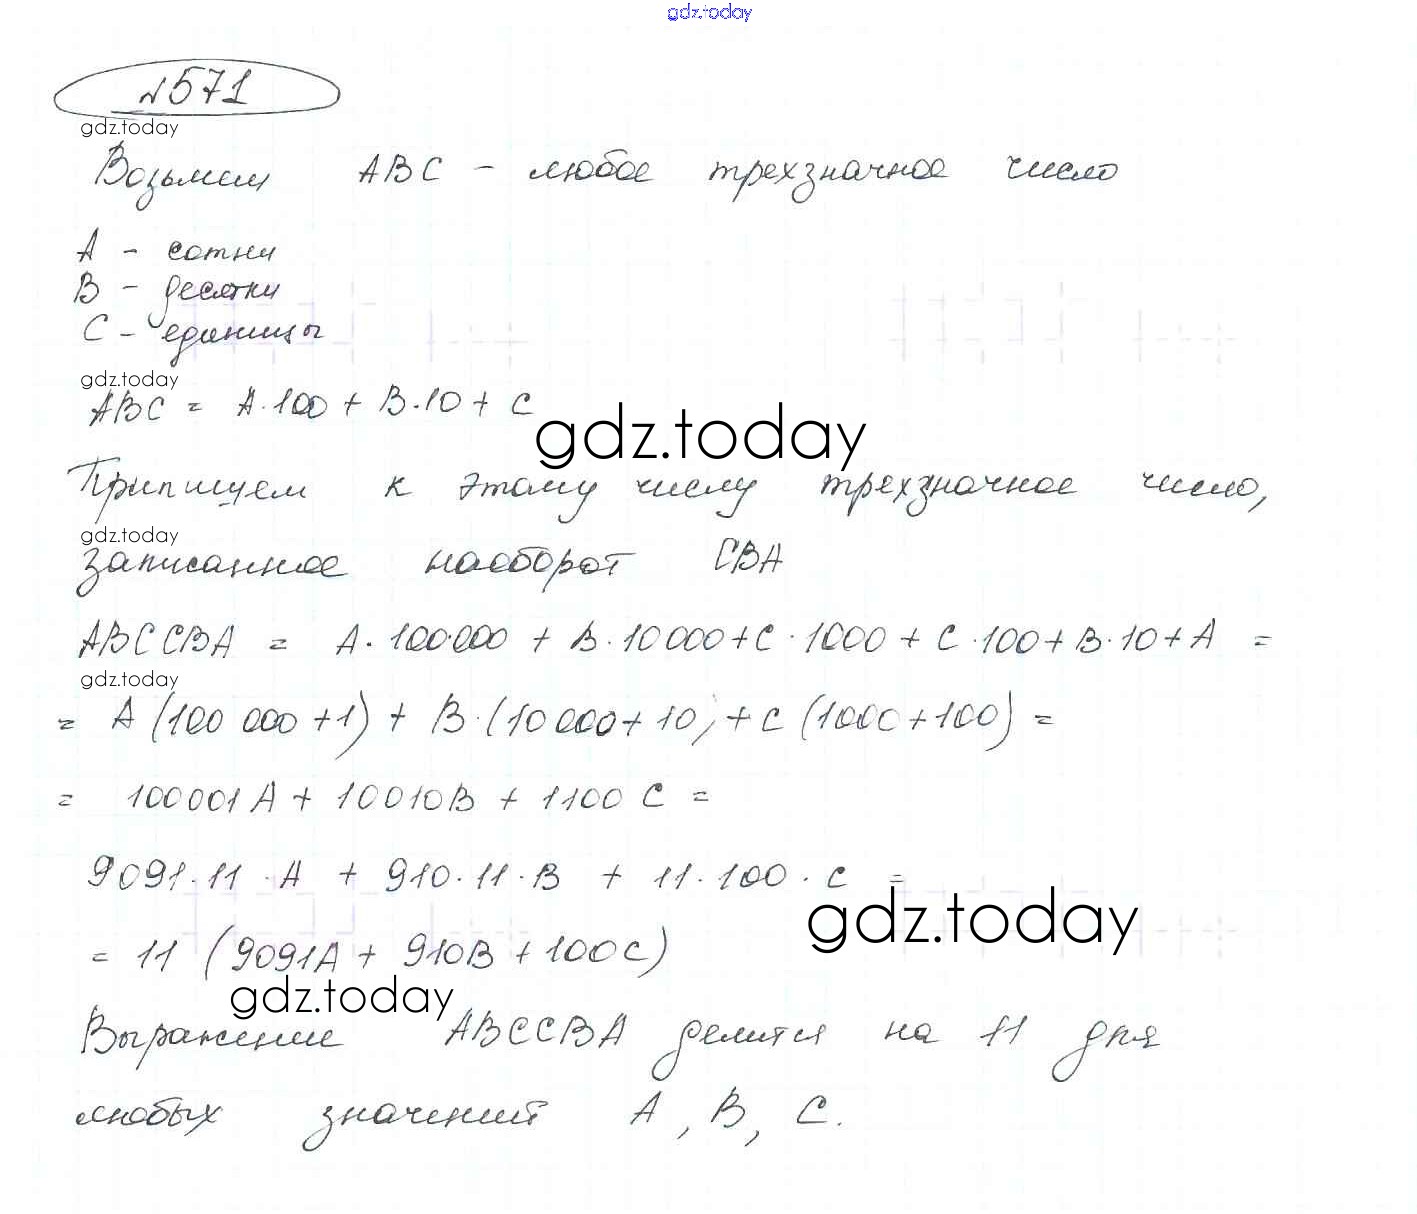 gdz.today
№571
gdz.today
Возьмем ABC - любое трехзначное число
A - сотни
B - десятки
C - единицы
gdz.today
ABC = A·100 + B·10 + C
gdz.today
Припишем к этому числу трехзначное число,
gdz.today
записанное наоборот CBA
ABCCBA = A·100000 + B·10000 + C·1000 + C·100 + B·10 + A =
gdz.today
= A (100 000 + 1) + B·(10 000 + 10) + C (1000 + 100) =
= 100001 A + 10010 B + 1100 C =
9091·11·A + 910·11·B + 11·100·C =
gdz.today
= 11 (9091A + 910B + 100C)
gdz.today
Выражение ABCCBA делится на 11 для
любых значений A, B, C.